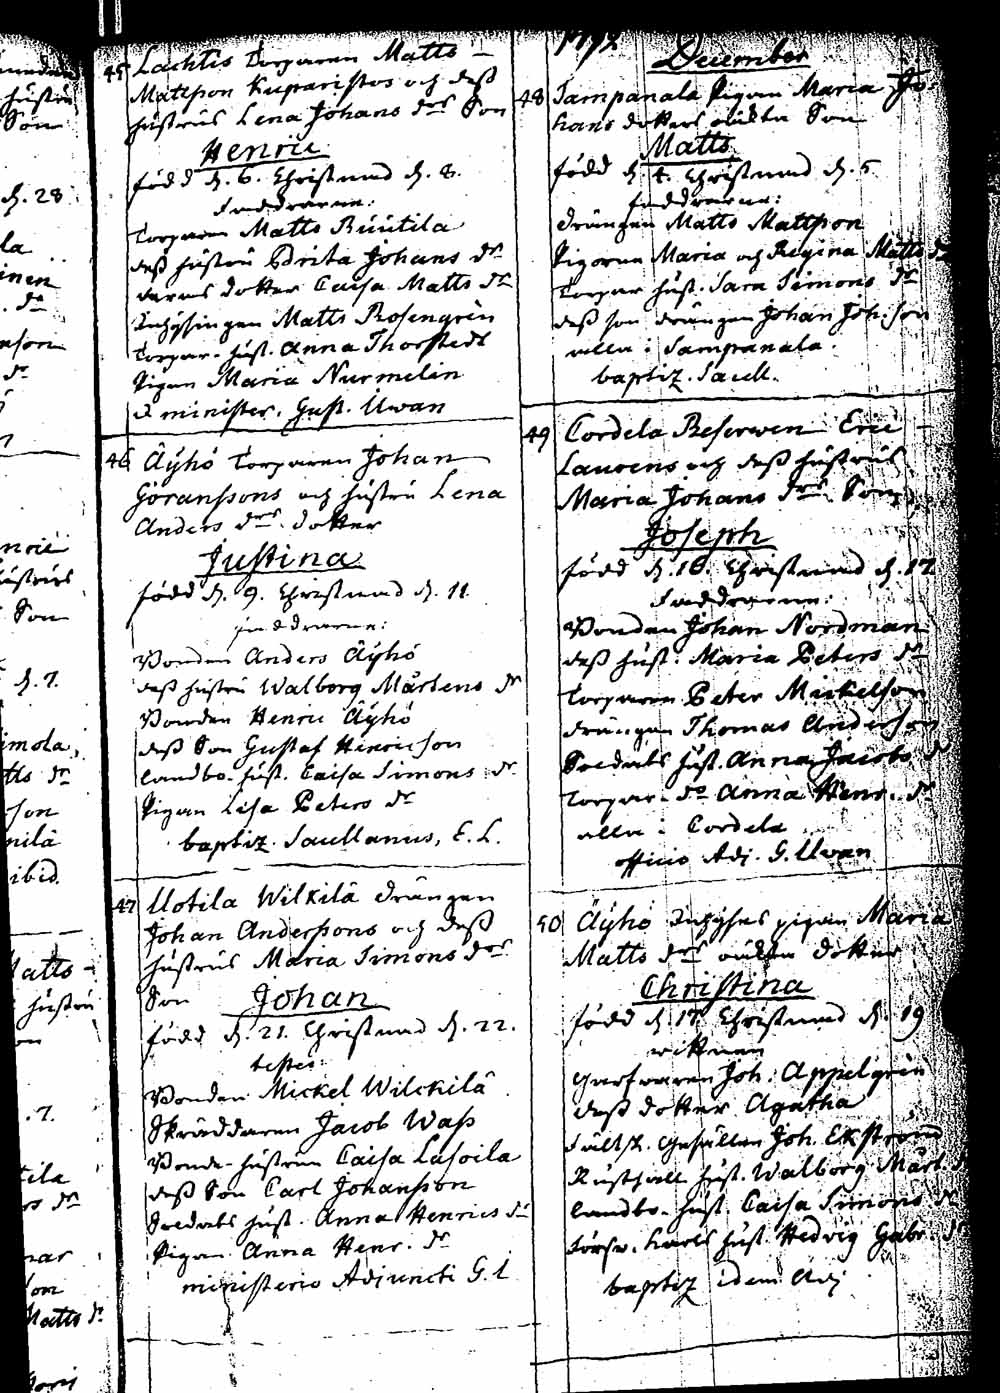 45 Lachtis Torparen Matts
Mattsson Kuparistos och dess
hustrus Lena Johans drs Son
Henric
född d. 6. Christnad d. 8.
Faddrarne:
Torparen Matts Ruutila
dess hustru Brita Johans dr
deras dotter Caisa Matts dr
Inhysingen Matts Rosengren
Torpar-hust. Anna Thorstedt
Pigan Maria Nurmelin
minister. Gust. Uwan
46 Äyhö Torparen Johan
Göranssons och hustru Lena
Anders drs dotter
Justina
född d. 9. Christnad d. 11
faddrarne:
Bonden Anders Äyhö
dess hustru Walborg Mårtens dr
Bonden Henric Äyhö
dess Son Gustaf Henricson
Landbo-hust. Caisa Simons dr
Pigan Lisa Peters dr
baptiz. Saullanus, E. L.
47 Uotila Wilkilä drängen
Johan Anderssons och dess
hustrus Maria Simons drs
Son Johan
född d. 21. Christnad d. 22.
testes:
Bonden Mickel Wilckilä
Skräddaren Jacob Wass
Bonde-hustrun Caisa Lasoila
dess Son Carl Johansson
Soldats hust. Anna Henrics dr
Pigan Anna Henr. dr
ministerio Adjuncti G. U
1792
December
48 Sampanala Pigan Maria Jo-
hans dotters oäkta Son
Matts
född d 4. Christnad d. 5
faddrarne:
drängen Matts Mattsson
Pigorna Maria och Regina Matts dr
Torpar hust. Sara Simons dr
dess son drängen Johan Joh:son
alla: Sampanala.
baptiz. Saull.
49 Cordela Reserwen Eric
Laurens och dess hustrus
Maria Johans drs Son
Joseph
född d. 16. Christnad d. 17
Faddrarne:
Bonden Johan Nordman
dess hust. Maria Peters dr
Torparen Peter Mickelson
drängen Thomas Anderson
Soldats hust. Anna Jacobs dr
Torpar-do Anna Henr. dr
alla: Cordela
officio Adj. G. Uwan
50 Äyhö Inhyses pigan Maria
Matts drs oäkta dotter
Christina
född d 17 Christnad d. 19
wittnen
Garfwaren Joh. Appelgren
dess dotter Agatha
Fältsk. Gesällen Joh. Ekström
Rusthåll hust. Walborg Mårt. dr
Landbo-hust. Caisa Simons dr
hust. Hedvig Gabr. dr
baptiz idem Adj